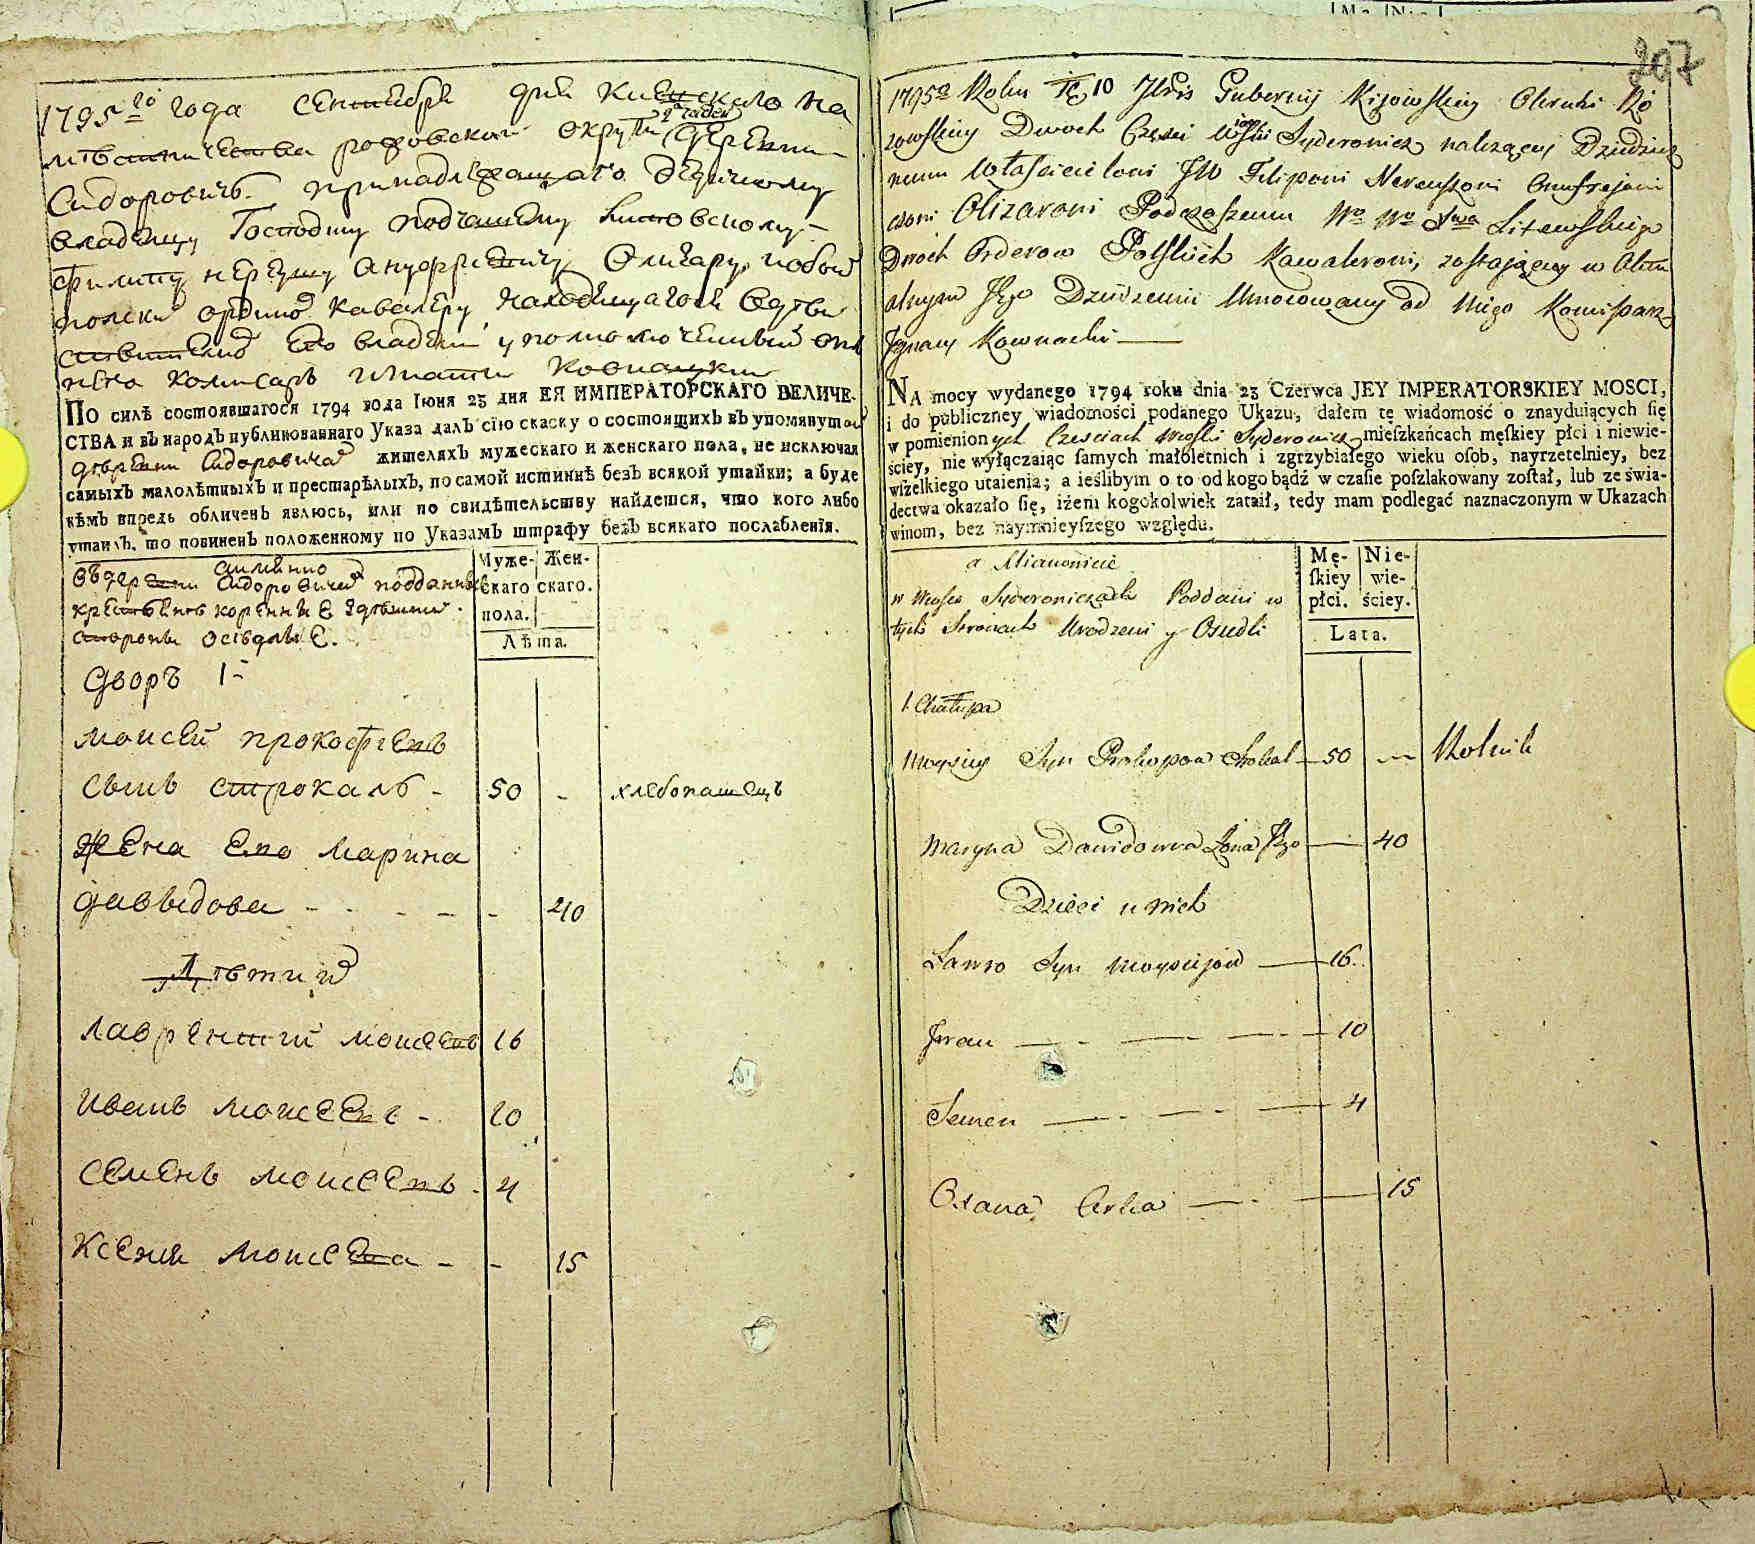 207
1795го года сентября дня Киевскаго на
мѣстничества радомскои округи 2х частеи деревни
Сидоровичъ принадлежащаго дѣдичному
владелцу Господину подчашему Литовскому
Филипу Нереушу Ануфриевичу Олизару, побои
полски ордино кавалеру, находящагося въ дѣи
ствително его владени уполномоченныи опт
него комисаръ игнати ковнацки
По силѣ состоявшагося 1794 года Іюня 23 дня ЕЯ ИМПЕРАТОРСКАГО ВЕЛИЧЕ-
СТВА и въ народъ публикованнаго Указа далъ сїю скаску о состоящихъ въ упомянутои
деревни Сидоровичах жителяхъ мужескаго и женскаго пола, не исключая
самыхъ малолѣтныхъ и престарѣлыхъ, по самой истиннѣ безъ всякой утайки; а буде
кѣмъ впредь обличенъ явлюсь, или по свидѣтельству найдется, что кого либо
утаилъ, то повиненъ положенному по Указамъ штрафу безъ всякаго послабленїя.
аимянно
въ деревни Сидоровичах подданные
крестьяне коренные здѣшнии
стороны оседлые.
Муже-
скаго
пола.
Жен-
скаго.
Лѣта.
Дворъ 1-
Моисей прокофиевъ
сынъ строкалъ - 50 - хлебопашецъ
Жена его Марина
давыдова - - - - - 40
Дѣти их
Лаврентии моисеевъ 16
Иванъ моисеевъ - 10
Семенъ моисеевъ - 4
Ксения моисеева - - 15
1795o Roku 10 Guberniy Kijowskiey Okruhi Ro
Dwoch Części Wsiow Syderowicz należącey Dziedzicz
nemu Właścicielowi JW Filipowi Nereuszowi Onufrejowi
czowi Olizarowi Podczaszemu Wo Wo Litewskiego
Dwoch Orderow Polskich Kawalerowi, zostającey w Aktu
alnym Jego Dziedzeniu Umocowany od Niego Komissarz
Ignacy Kownacki
NA mocy wydanego 1794 roku dnia 23 Czerwca JEY IMPERATORSKIEY MOSCI,
i do publiczney wiadomości podanego Ukazu, dałem tę wiadomość o znayduiących ſię
w pomienionych Częsciach Wioski Syderowicz mieſzkańcach męſkiey płci i niewie-
ściey, nie wyłączaiąc ſamych małoletnich i zgrzybiałego wieku oſob, nayrzetelniey, bez
wſzelkiego utaienia; a ieślibym o to od kogo bądź w czaſie poſzlakowany zoſtał, lub ze świa-
dectwa okazało ſię, iżem kogokolwiek zataił, tedy mam podlegać naznaczonym w Ukazach
winom, bez naymnieyſzego względu.
a Mianowicie
w Wiosce Syderowiczach Poddani w
tych Stronach Urodzeni y Osiedli
Mę-
ſkiey
płci.
Nie-
wie-
ściey.
Lata.
1. Chałupa
Moysiey Syn Prokopow Strokal 50 - Rolnik
Maryna Dawidowna Żona Jego 40
Dzieci u nich
Lawro Syn Moysiejow 16
Jwan 10
Semen 4
Oxana Corka 15